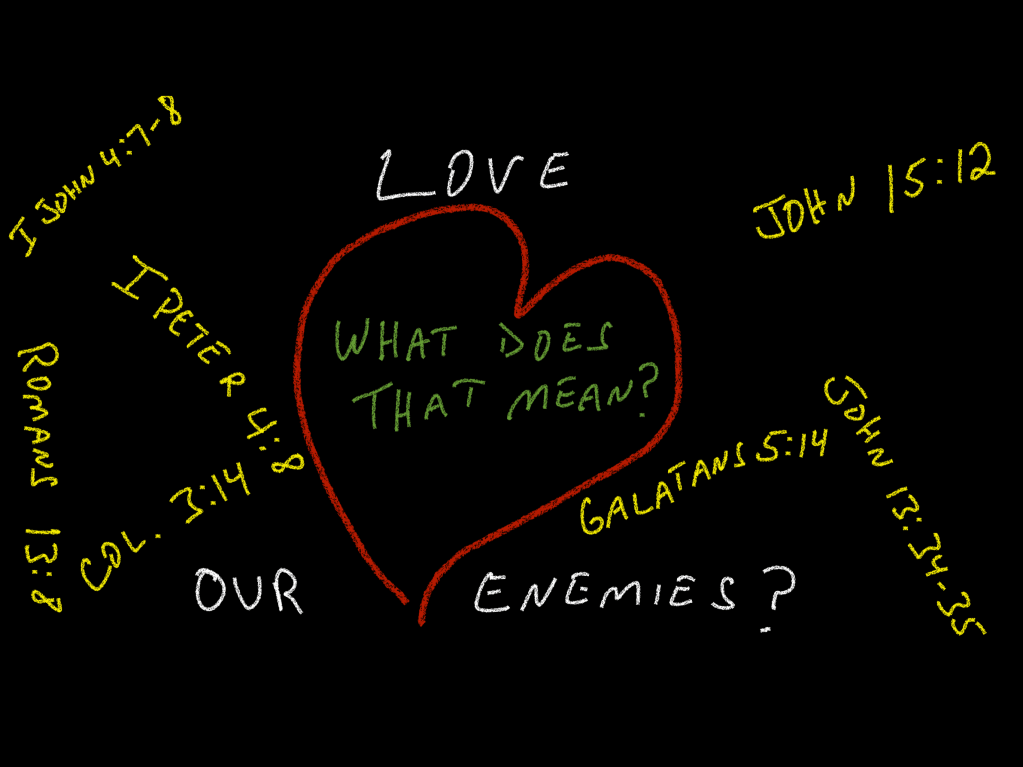 LOVE
I JOHN 4:7-8
JOHN 15:12
I PETER 4:8
WHAT DOES
THAT MEAN?
ROMANS 13:8
COL. 3:14
GALATANS 5:14
JOHN 13:34-35
OUR ENEMIES?